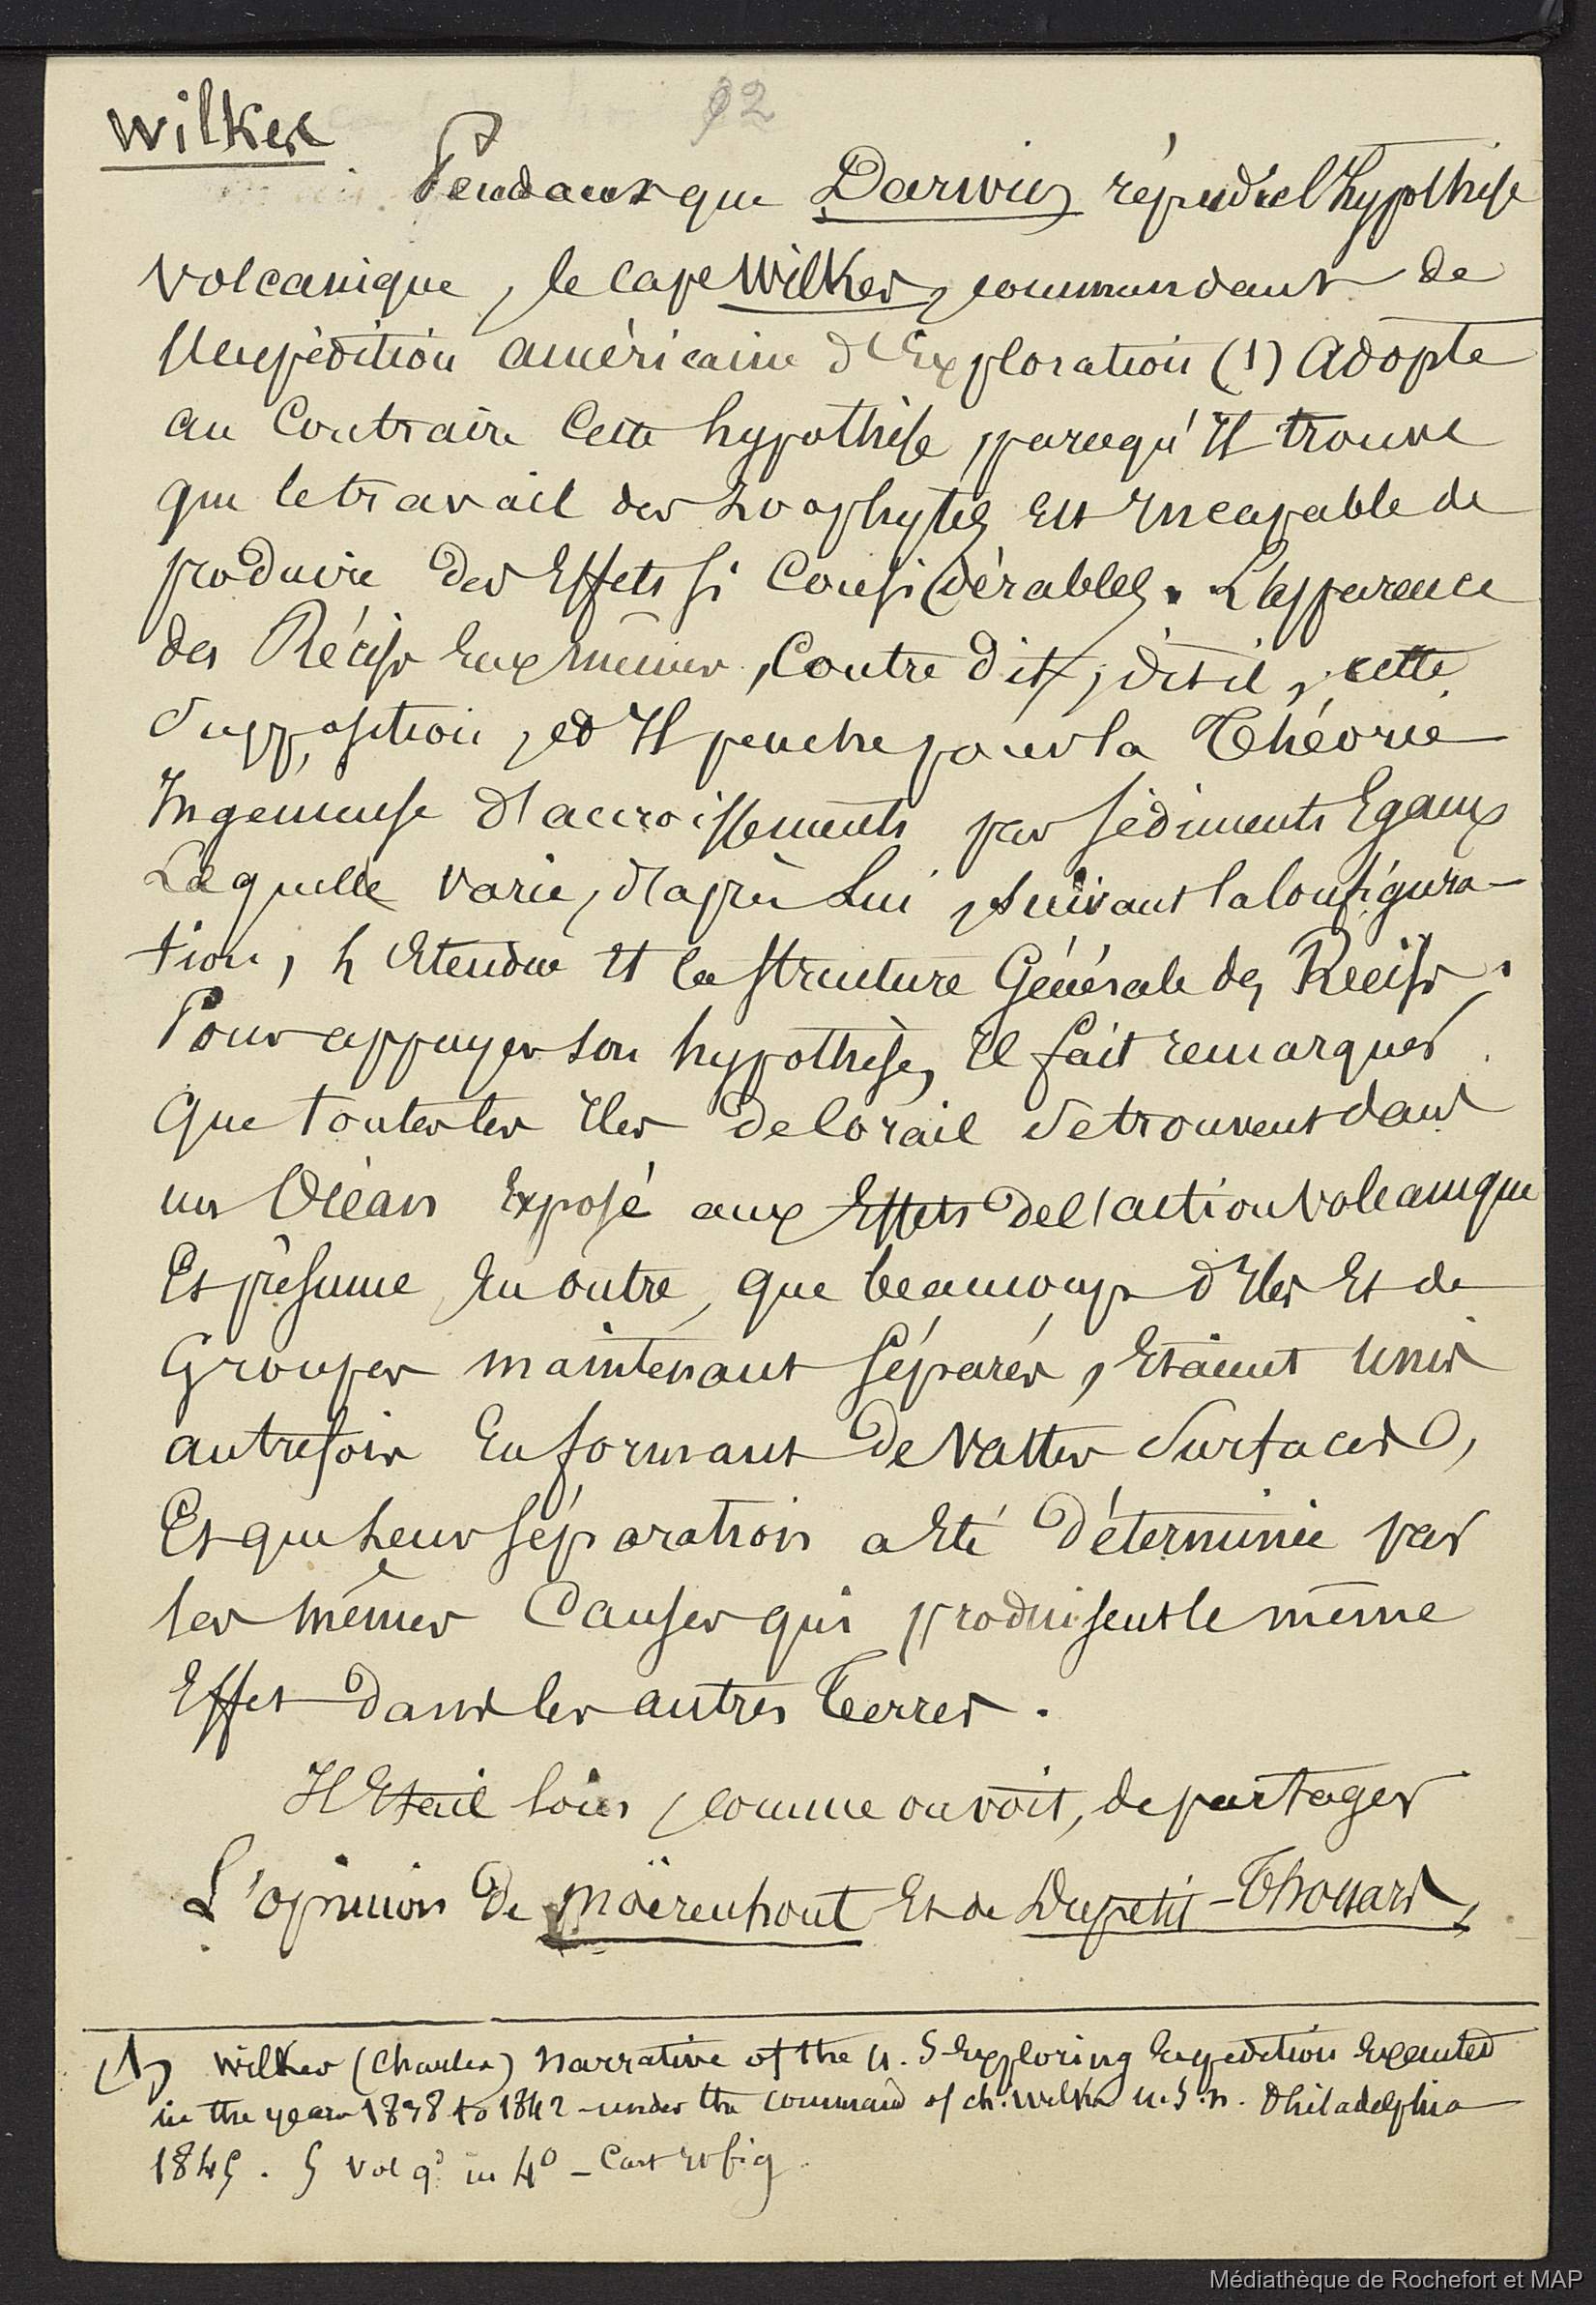 Wilkes
92
Pendant que Darwin répudie l'hypothèse
volcanique, le cape Wilkes, commandant de
l'expédition américaine d'Exploration (1) adopte
au Contraire Cette hypothèse, parcequ'Il trouve
que le travail des Zoophytes Est Incapable de
produire des Effets si Considérables. L'apparence
des Récifs Eux mêmes, Contredit, dit il, cette
Supposition, et Il penche pour la Théorie
Ingenieuse d'accroissements par sédiments Egaux
Laquelle varie, d'après Lui, suivant la Configura-
tion, L'Etendue Et la structure Générale des Récifs.
Pour appuyer son hypothèse, Il fait remarquer
que toutes les Iles de Corail se trouvent dans
un Océan Exposé aux Effets de l'action volcanique
Et présume En outre, que beaucoup d'Iles Et de
Groupes maintenant Séparés, Etaient Unis
autrefois En formant de vastes Surfaces,
Et que Leur séparation a Eté déterminée par
les mêmes Causes qui produisent le même
Effet dans les autres Terres.
Il Etait loin, comme on voit, de partager
L'opinion de Moërenhout Et de Dupetit-Thouars,
(1) Wilkes (Charles) Narrative of the U. S Exploring Expedition Executed
in the years 1838 to 1842 - under the command of ch. Wilkes U.S.N. Philadelphia
1845. 5 vol gd in 4° - Cart Et fig.
Médiathèque de Rochefort et MAP